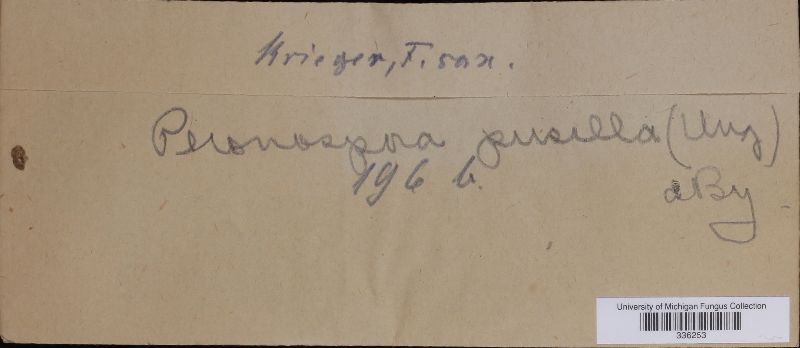 Krieger, F. sax.
Peronospora pusilla (Ung)
196 b.
dBy
University of Michigan Fungus Collection
336253